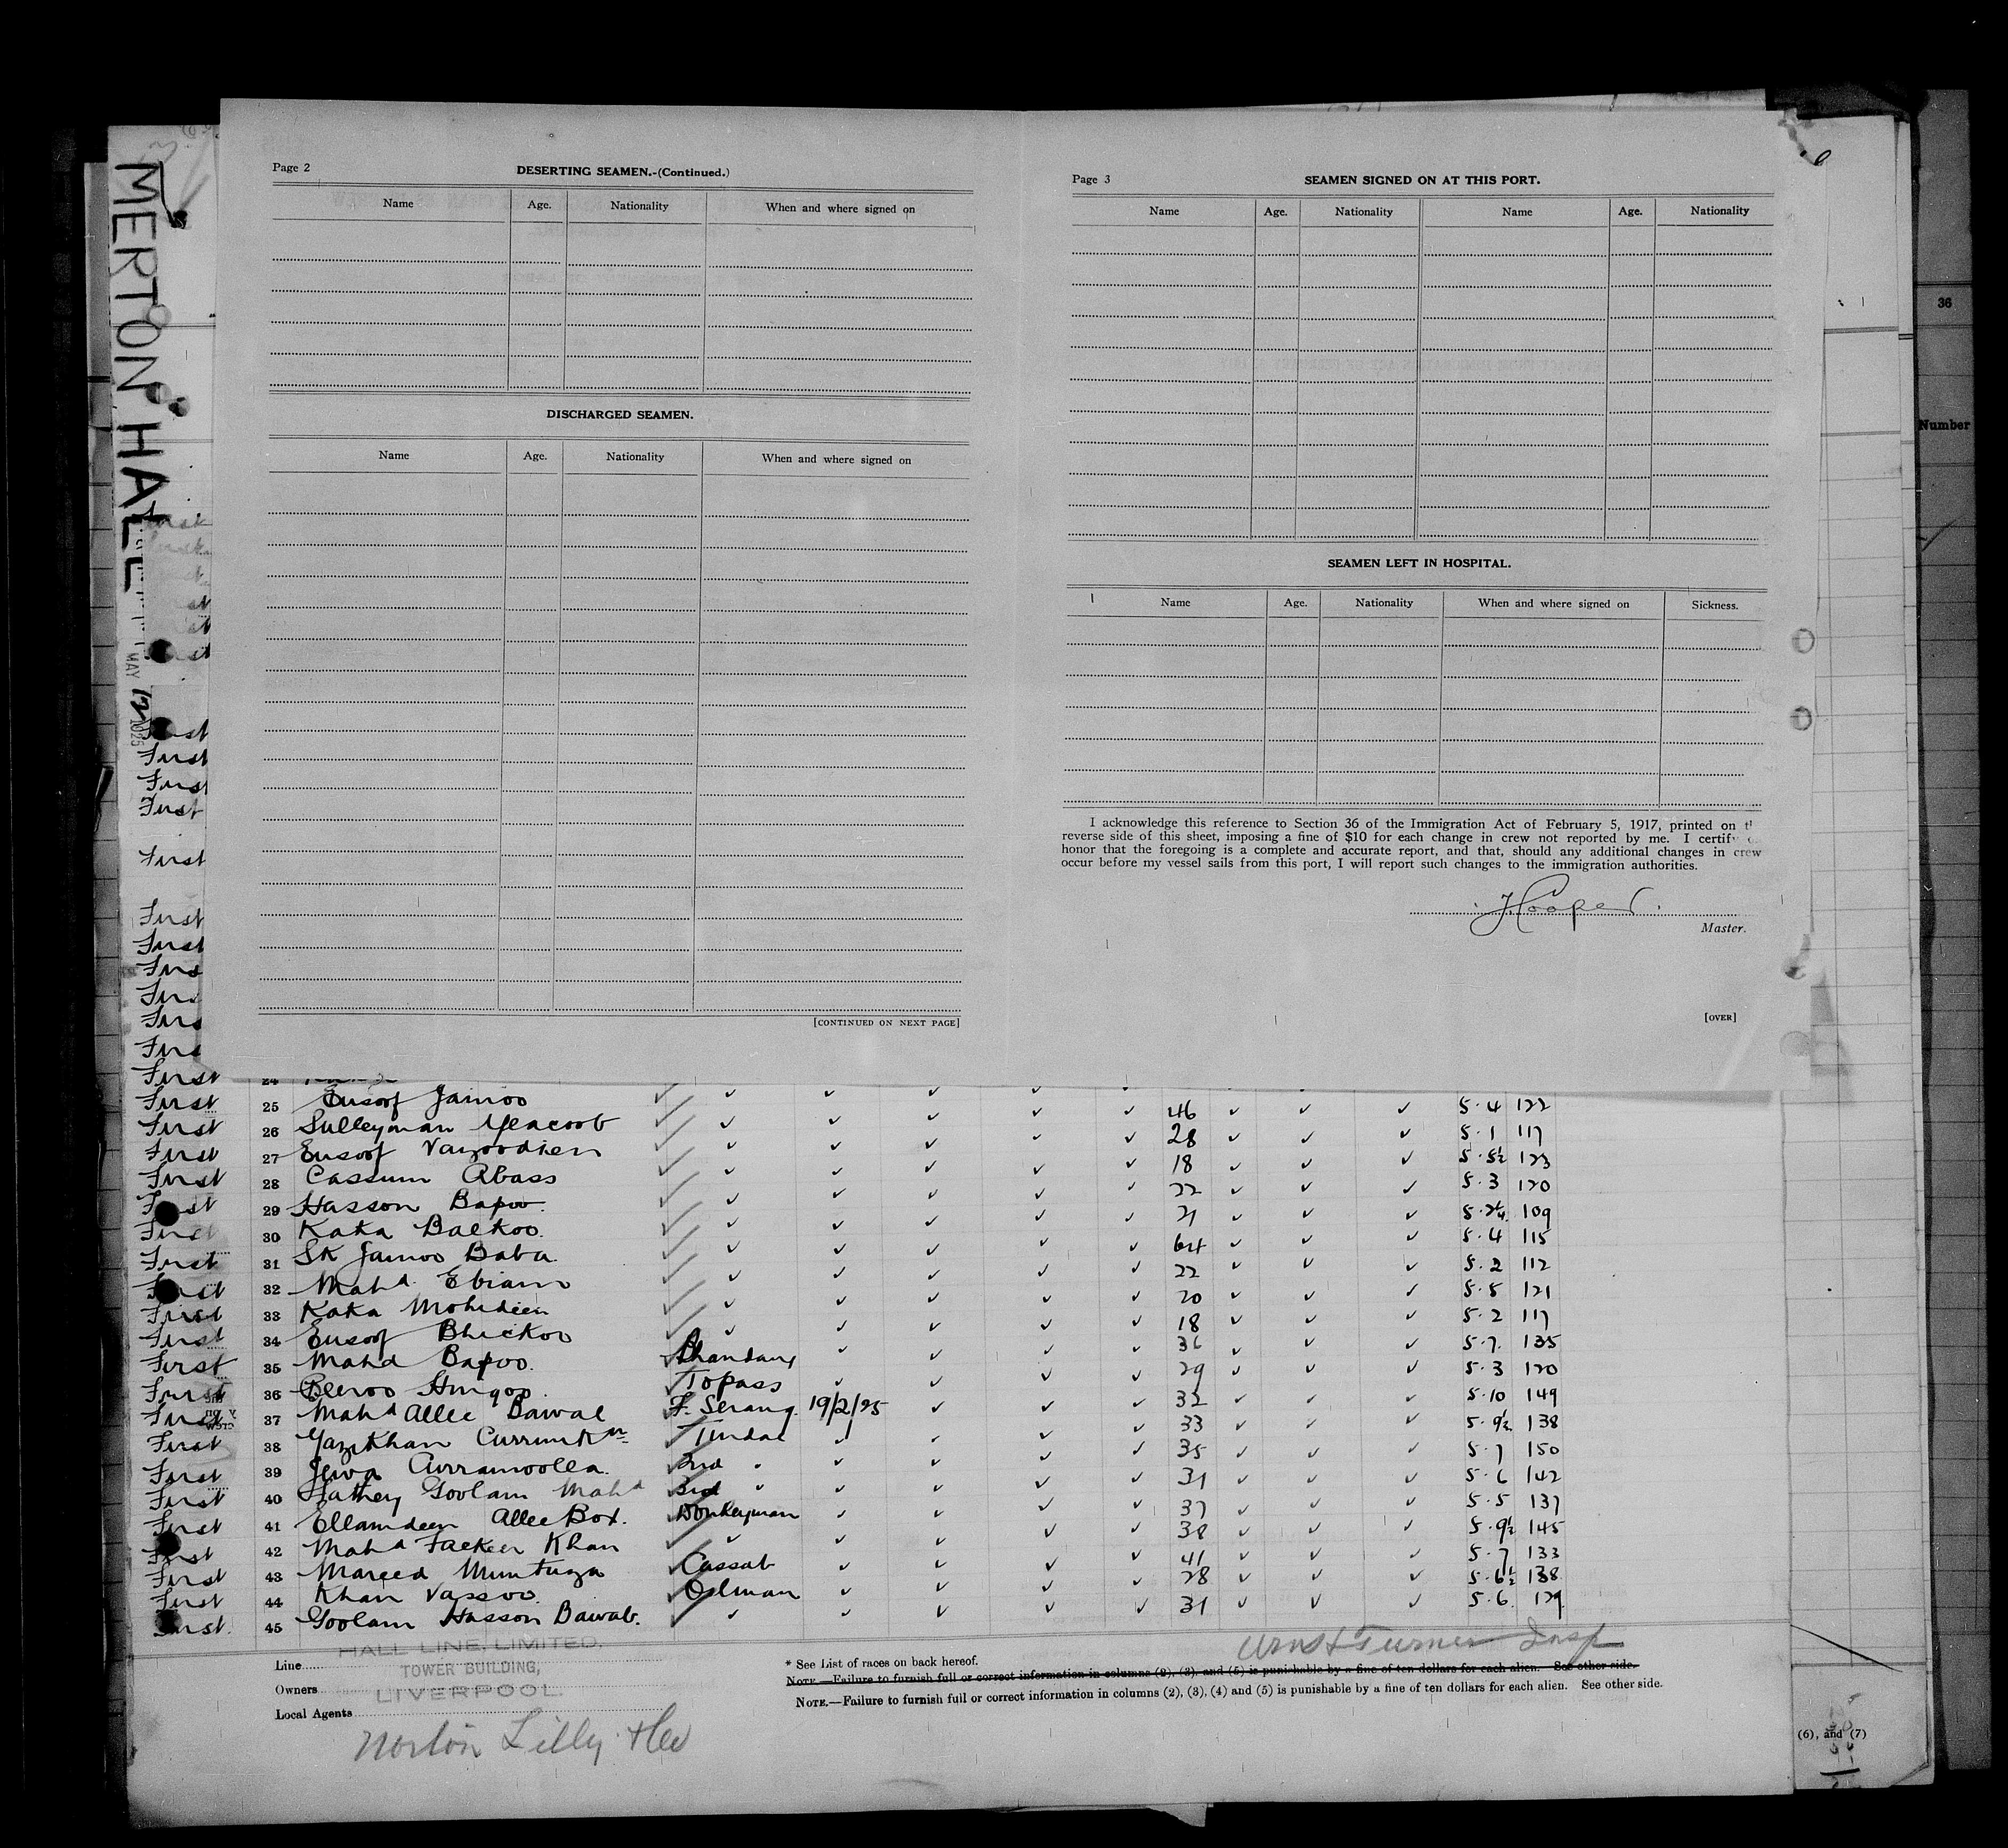 MERTON HALL
MAY 12 1925
Page 2
DESERTING SEAMEN.-(Continued.)
Name Age. Nationality When and where signed on
DISCHARGED SEAMEN.
Name Age. Nationality When and where signed on
[CONTINUED ON NEXT PAGE]
Page 3
SEAMEN SIGNED ON AT THIS PORT.
Name Age. Nationality Name Age. Nationality
SEAMEN LEFT IN HOSPITAL.
Name Age. Nationality When and where signed on Sickness.
I acknowledge this reference to Section 36 of the Immigration Act of February 5, 1917, printed on
reverse side of this sheet, imposing a fine of $10 for each change in crew not reported by me. I certify
honor that the foregoing is a complete and accurate report, and that, should any additional changes in crew
occur before my vessel sails from this port, I will report such changes to the immigration authorities.
J Cooper
Master.
[OVER]
36
Number
First
First
First
First
First
First
First
24
First 25 Eusoof Jainoo ✓ ✓ ✓ ✓ ✓ 46 ✓ ✓ ✓ 5.4 122
First 26 Sulleyman Yeacoob ✓ ✓ ✓ ✓ ✓ 28 ✓ ✓ ✓ 5.1 117
First 27 Eusoof ✓ ✓ ✓ ✓ ✓ 18 ✓ ✓ ✓ 5.5½ 123
First 28 Cassum Abass ✓ ✓ ✓ ✓ ✓ 22 ✓ ✓ ✓ 5.3 120
First 29 Hasson Bapoo ✓ ✓ ✓ ✓ ✓ 21 ✓ ✓ ✓ 109
First 30 Kaka Balkoo. ✓ ✓ ✓ ✓ ✓ 64 ✓ ✓ ✓ 5.4 115
First 31 Sk Jainoo Baba ✓ ✓ ✓ ✓ ✓ 22 ✓ ✓ ✓ 5.2 112
First 32 Mahd. Ebiam ✓ ✓ ✓ ✓ ✓ 20 ✓ ✓ ✓ 5.5 121
First 33 Kaka Mohideen ✓ ✓ ✓ ✓ ✓ 18 ✓ ✓ ✓ 5.2 117
First 34 Eusoof Bhickoo ✓ ✓ ✓ ✓ ✓ 36 ✓ ✓ ✓ 5.7. 135
First 35 Mahd Bapoo. Bhandary ✓ ✓ ✓ ✓ 29 ✓ ✓ ✓ 5.3 120
First 36 Topass ✓ ✓ ✓ ✓ 32 ✓ ✓ ✓ 5.10 149
First 37 Mahd Allee Bawal F. Serang. 19/2/25 ✓ ✓ ✓ 33 ✓ ✓ ✓ 5.9½ 138
First 38 Tindal ✓ ✓ ✓ ✓ 35 ✓ ✓ ✓ 5.7 150
First 39 Jewa Curramoolla. 2nd " ✓ ✓ ✓ ✓ 31 ✓ ✓ ✓ 5.6 142
First 40 Fathey Goolam Mahd 3rd " ✓ ✓ ✓ ✓ 37 ✓ ✓ ✓ 5.5 137
First 41 Ellamdeen Allee Box. Donkeyman ✓ ✓ ✓ ✓ 38 ✓ ✓ ✓ 5.9½ 145
First 42 Mahd Fackeer Khan ✓ ✓ ✓ ✓ ✓ 41 ✓ ✓ ✓ 5.7 133
First 43 Mareed Muntuza Cassab ✓ ✓ ✓ ✓ 28 ✓ ✓ ✓ 5.6½ 138
First 44 Khan Vassoo. Oilman ✓ ✓ ✓ ✓ 31 ✓ ✓ ✓ 5.6. 129
First. 45 Goolam Hasson Bawab. ✓ ✓ ✓
Line HALL LINE, LIMITED.
Owners TOWER BUILDING,
LIVERPOOL.
Local Agents Norton Lilly & Co
Turner Insp
* See List of races on back hereof.
NOTE.—Failure to furnish full or correct information in columns (2), (3), and (5) is punishable by a fine of ten dollars for each alien. See other side.
NOTE.—Failure to furnish full or correct information in columns (2), (3), (4) and (5) is punishable by a fine of ten dollars for each alien. See other side.
(6), and (7)